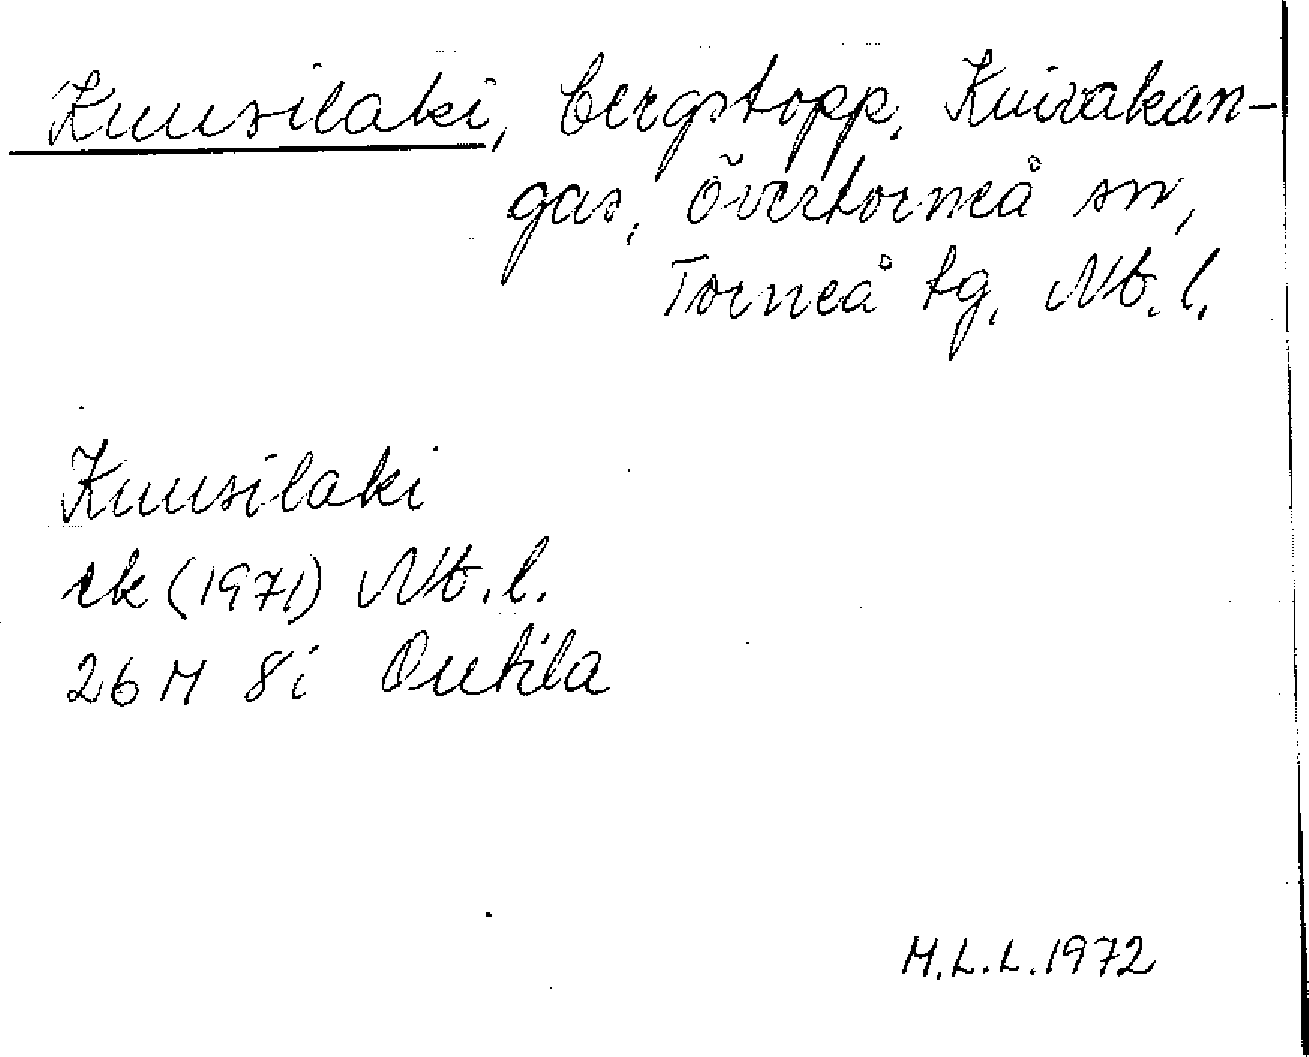 Kuusilaki, bergstopp, Kuivakan-
gas, Övertorneå sn,
Torneå tg, Nb.l.
Kuusilaki
ek (1971) Nb.l.
26 M 8i Outila
M.L.L. 1972